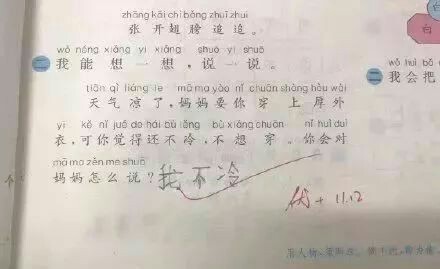 zhāng kāi chì bǎng zhuī zhuī
张开翅膀追追。
wǒ néng xiǎng yi xiǎng shuō yi shuō
二 我能想一想,说一说。
tiān qì liáng le mā ma yào nǐ chuān shàng hòu wài
天气凉了,妈妈要你穿上厚外
yī kě nǐ jué de hái bù lěng bù xiǎng chuān nǐ huì duì
衣,可你觉得还不冷,不想穿。你会对
mā ma zěn me shuō
妈妈怎么说?我不冷
11.12
wǒ huì bǎ
二 我会把
白